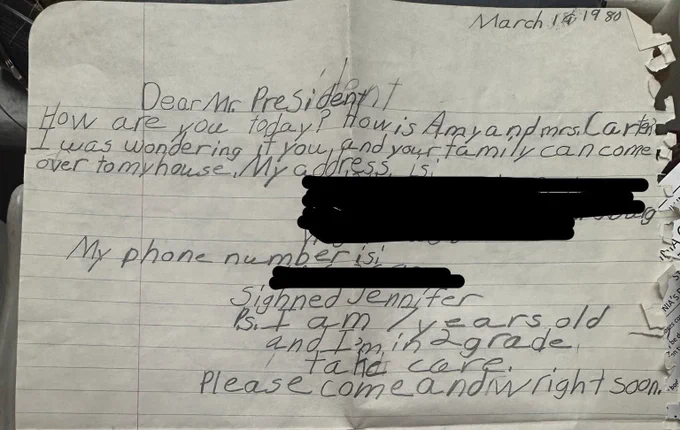 March 1 1980
Dear Mr. President
How are you today? How is Amy and mrs. Carter
I was wondering if you, and your family can come
over to my house. My address is:
My phone number is:
Sighned Jennifer
Ps. I am 7 years old
and I'm in 2 grade.
take care.
Please come and wright soon.